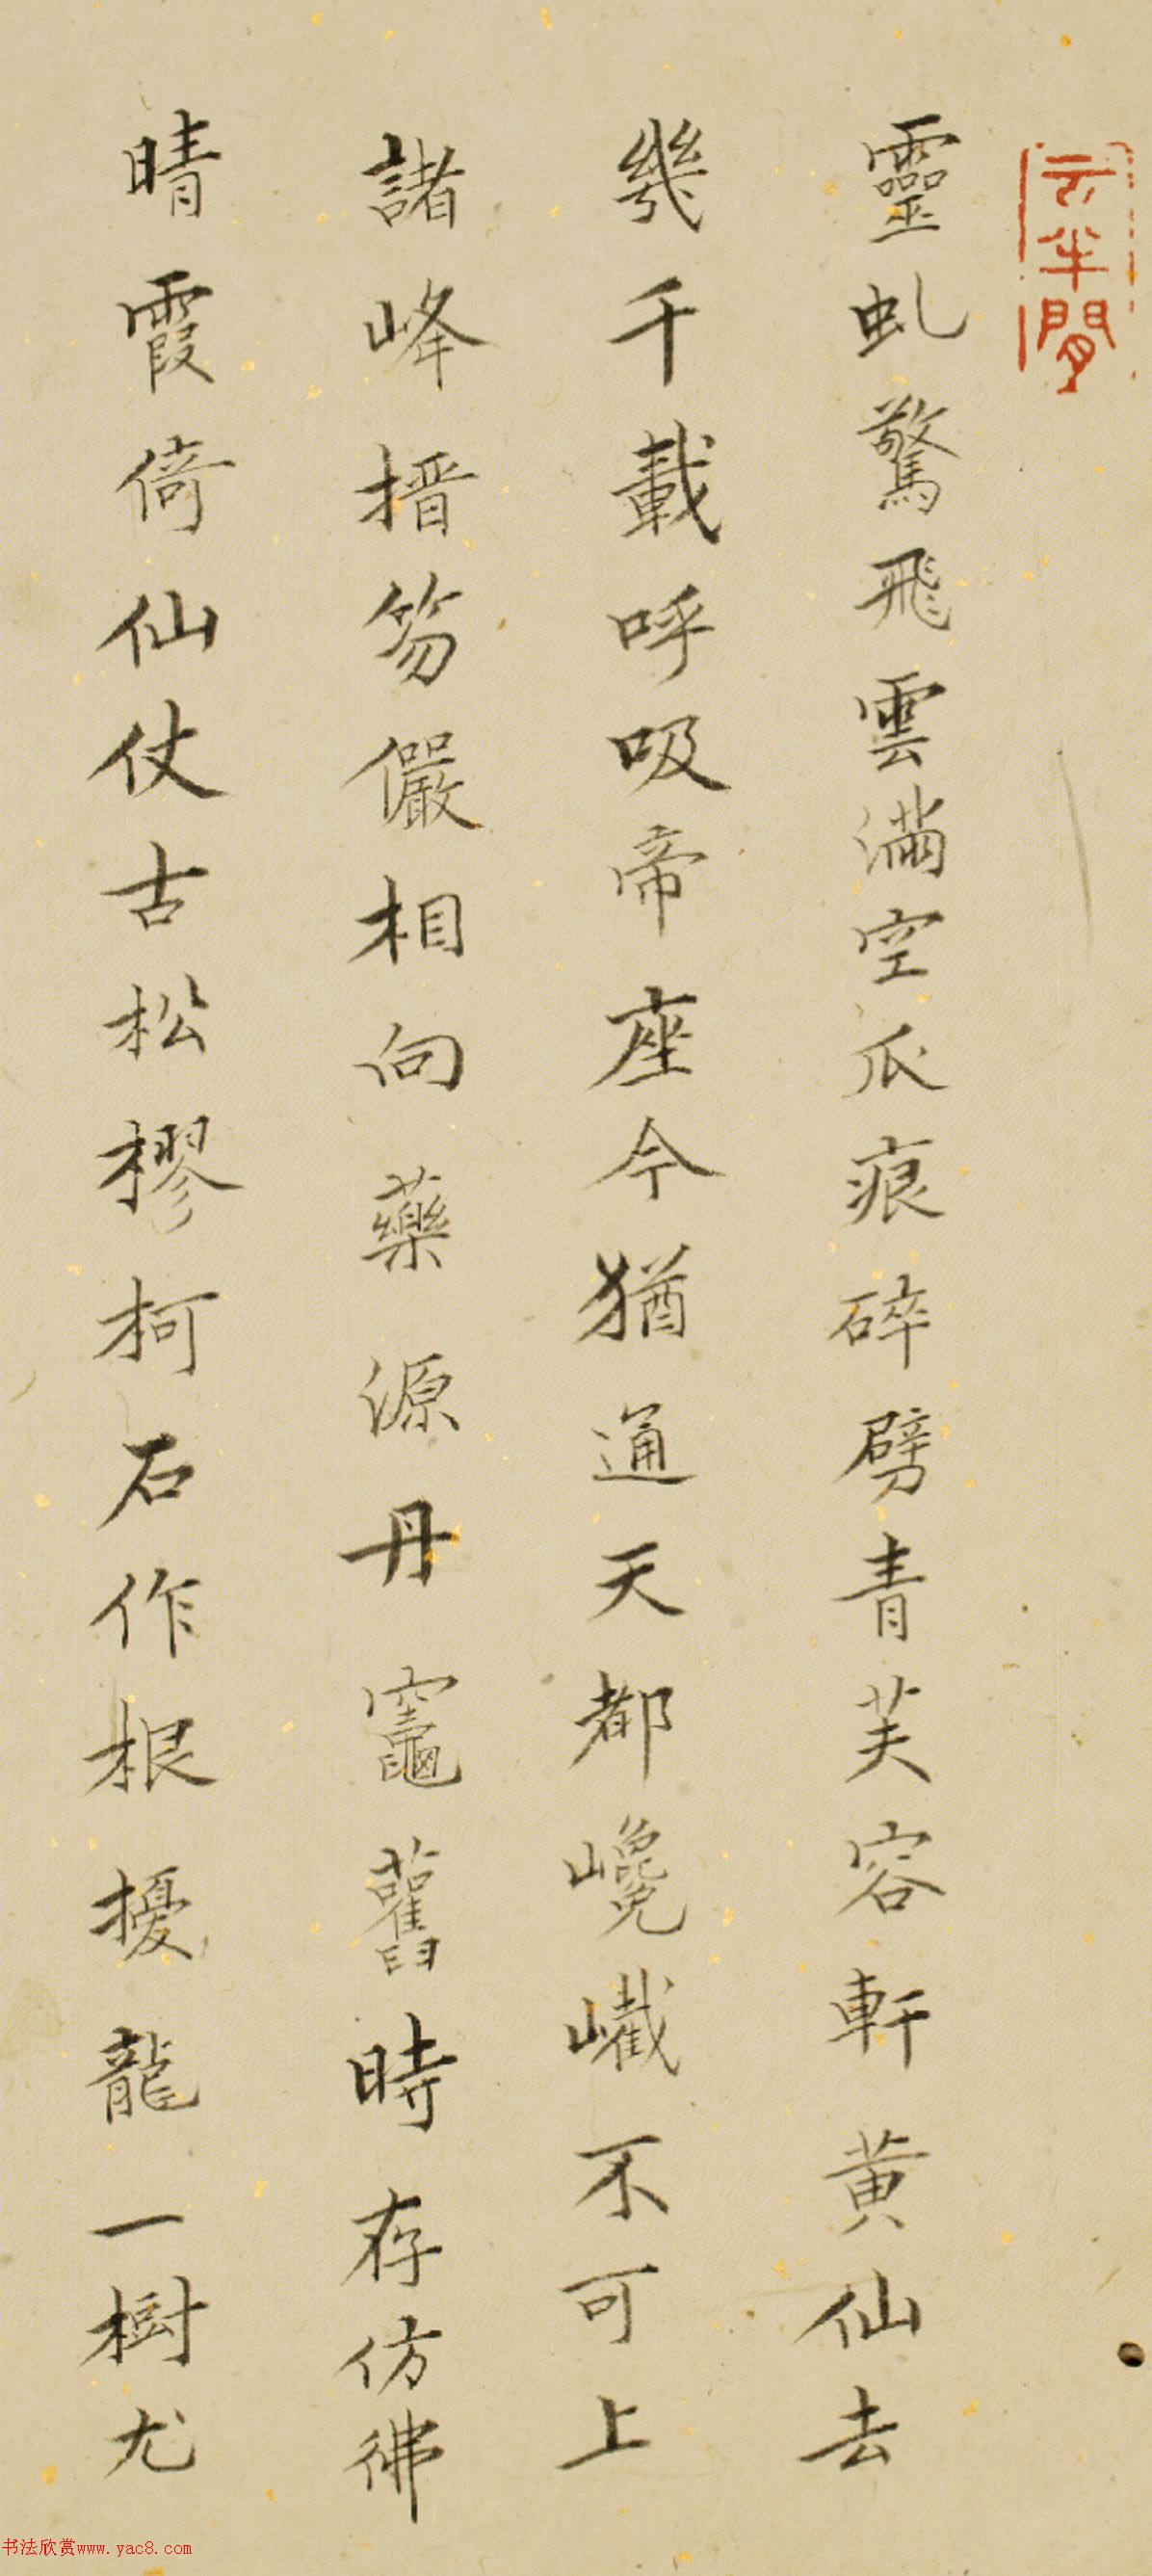 云半間
靈虬驚飛雲滿空爪痕碎劈青芙容軒黃仙去
幾千載呼吸帝座今猶通天都巉巀不可上
諸峰搢笏儼相向藥源丹竈舊時存仿彿
晴霞倚仙仗古松樛柯石作根擾龍一樹尤
书法欣赏www.yac8.com